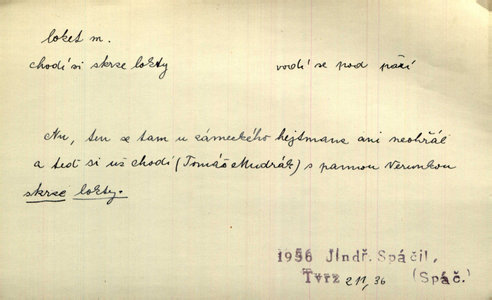 loket m.
chodí si skrze lokty vodí se pod paží
Nu, ten se tam u zámeckého hejtmana ani neohřál
a teď si už chodí (Tomáš Mudrák) s pannou Verunkou
skrze lokty.
1956 Jindř. Spáčil,
Tvrz 211, 36 (Spáč.)